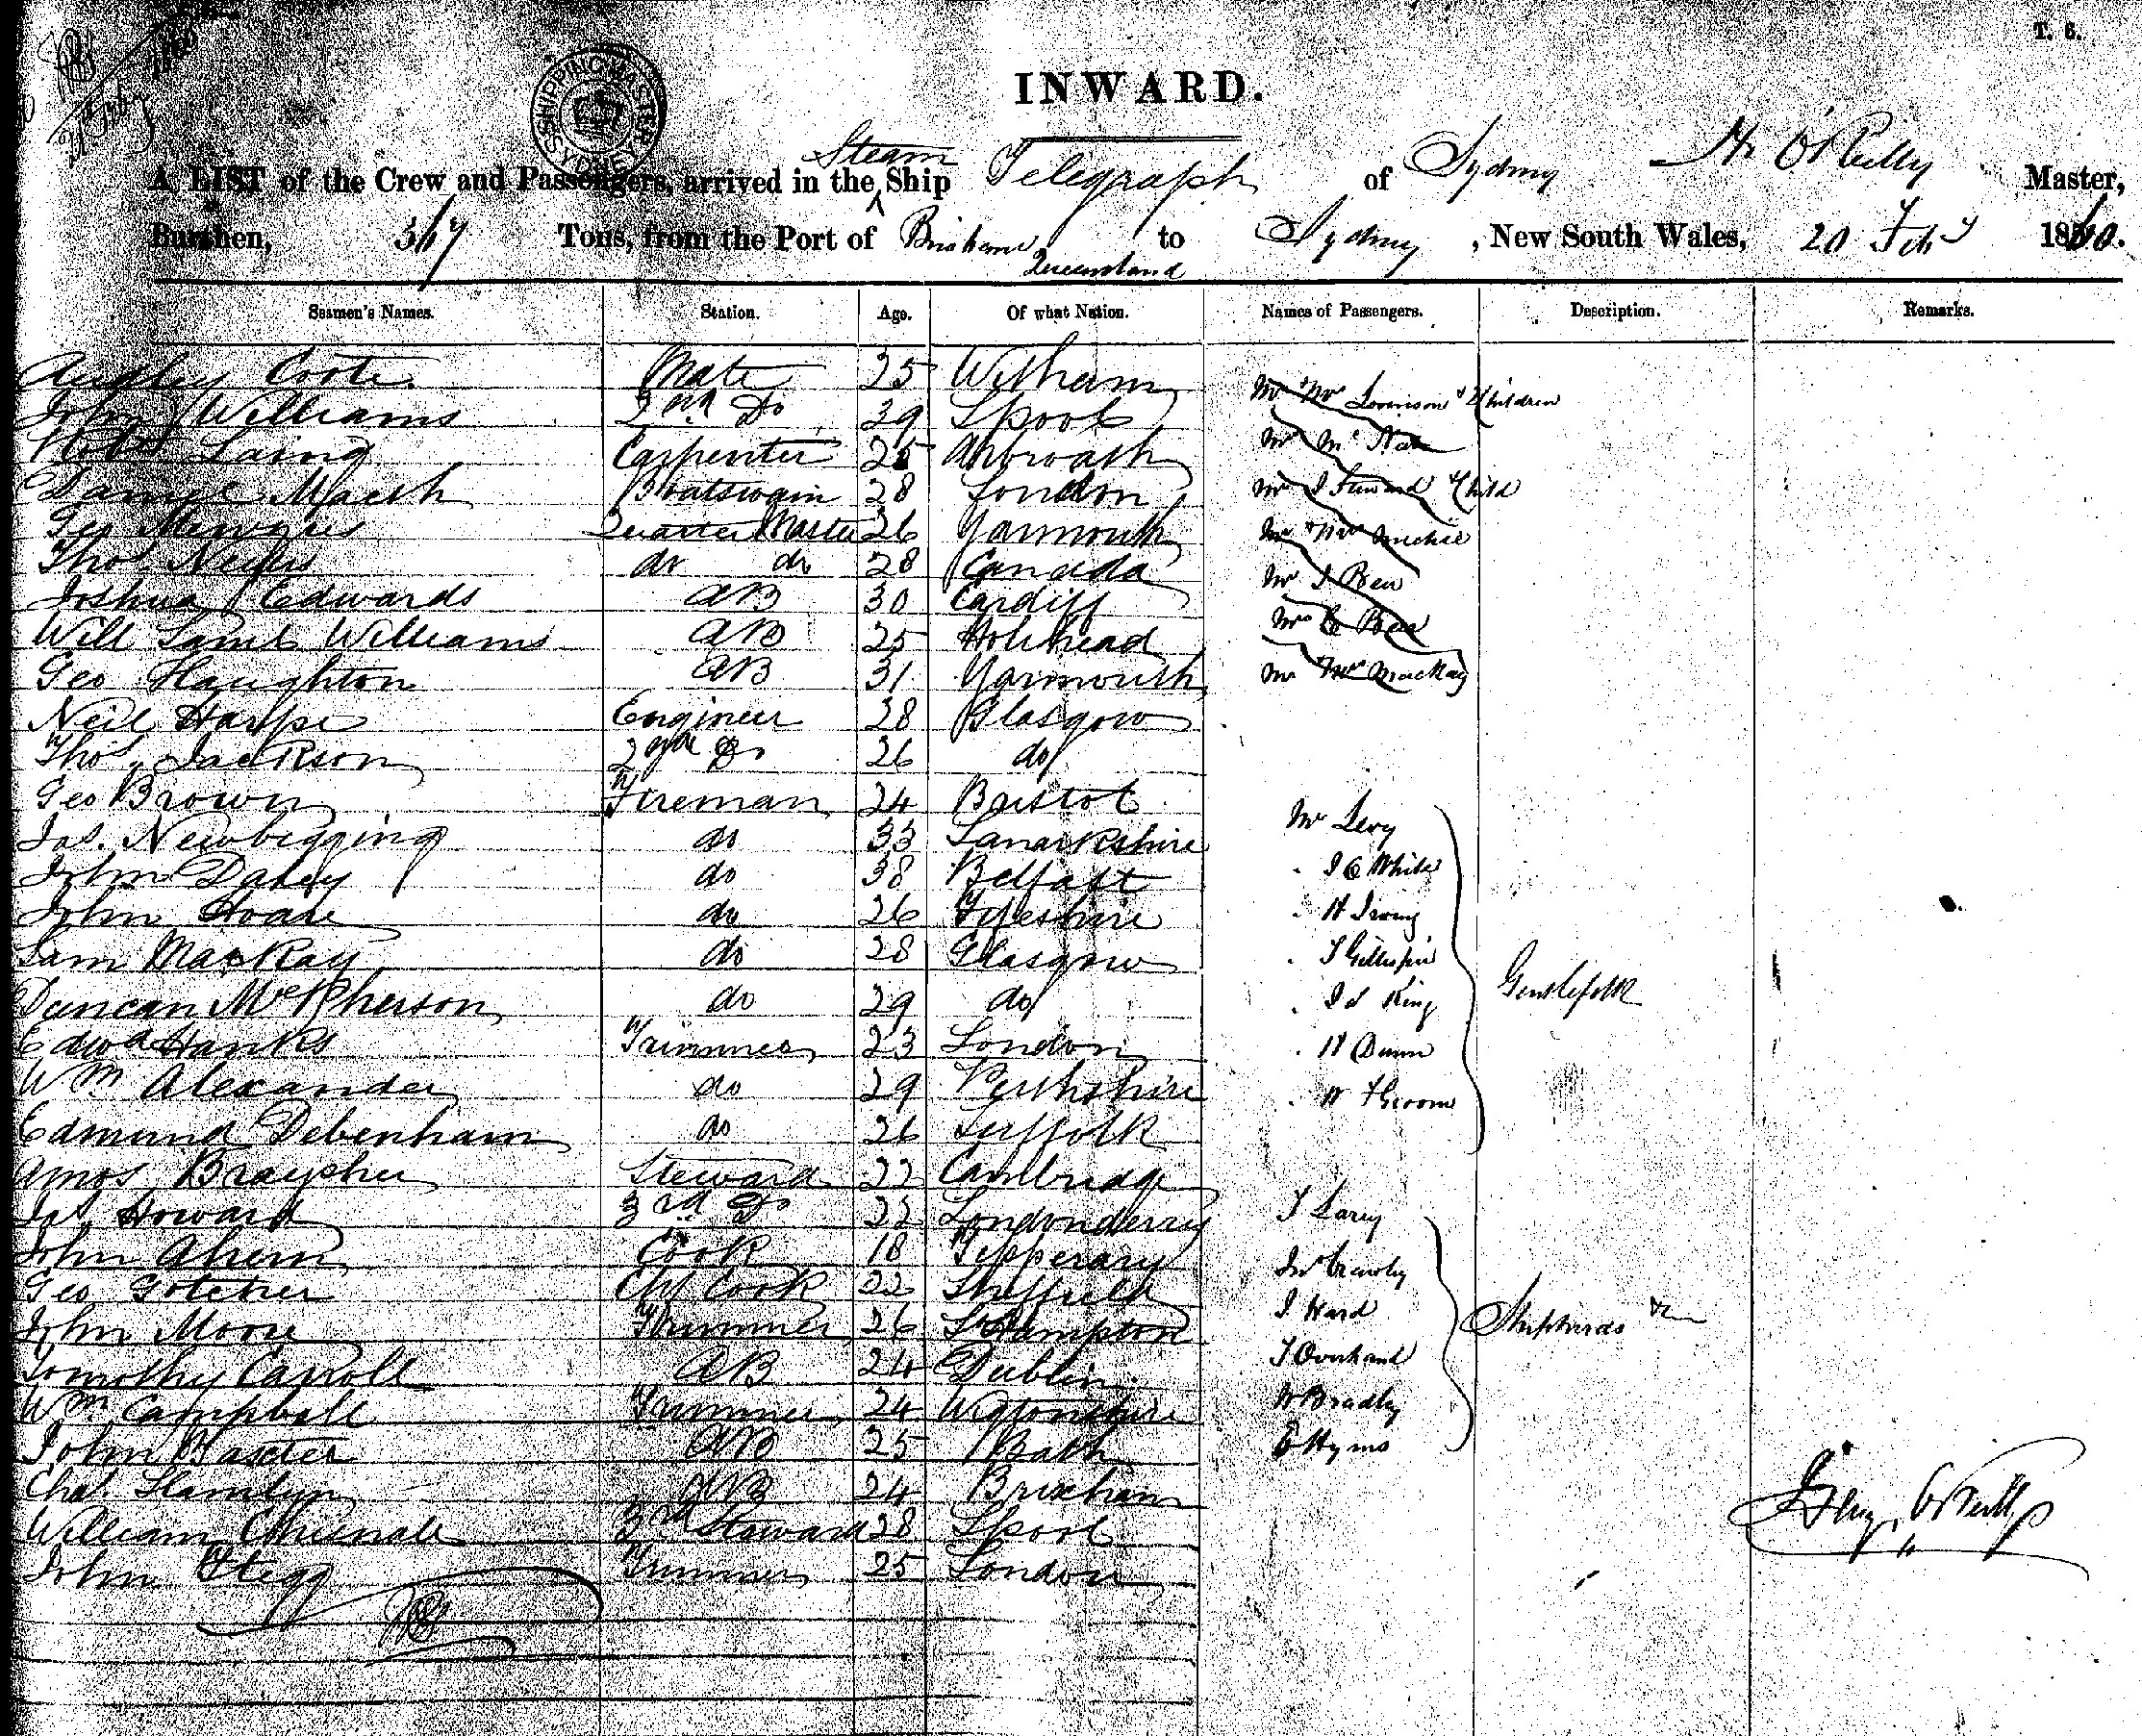 T. 6.
SHIPPING MASTER SYDNEY
INWARD.
Steam
A LIST of the Crew and Passengers, arrived in the ^ Ship Telegraph of Sydney H. O'Reilly Master,
Burthen, 367 Tons, from the Port of Brisbane to Sydney, New South Wales, 20 Feby 1860.
Queensland
Seamen's Names. Station. Age. Of what Nation. Names of Passengers. Description. Remarks.
Audley Coote. Mate 25 Witham Mr & Mrs & Children
John Williams 2nd Do 39 Lpool
Laing Carpenter 25 Arbroath Mr Mc
Daniel Marsh Boatswain 28 London & Child
Geo Quarter Master 26 Yarmouth Mr & Mrs Michie
Thos do do 28 Canada Mr
Joshua Edwards AB 30 Cardiff Mrs
Will Saml Williams AB 25 Holihead
Geo Haughton AB 31 Yarmouth Mr & Mrs Mackay
Neil Harpe Engineer 28 Glasgow
Thos Jackson 2nd Do 26 do
Geo Brown Fireman 24 Bristol Mr Levy
Jas. Newbigging do 33 Lanarkshire " J C White
John Daley do 38 Belfast
John Hoare do 26 Fifeshire " H Irving
Sam MacKay do 28 Glasgow " T Gillespie
Duncan McPherson do 29 do " J S King Gentlefolk
Edwd Hanks Trimmer 23 London " H Dunn
Wm Alexander do 29 Perthshire
Edmund Debenham do 26 Suffolk
Amos Braysher Steward 22 Cambridge
Jas Howard 3rd Do 22 Londonderry
John Ahern Cook 18 Tipperary
Geo Gotcher Chf Cook 22 Sheffield
John Moore Trimmer 26 SHampton J. Hard Shepherds &c
Tomothy Carroll AB 24 Dublin
Wm Campbell Trimmer 24 Wigtonshire W Bradley
John Baxter AB 25 Bath E Hyms
Chas. Hamlyn AB 24 Brixham
William 3rd Steward 28 Lpool
John Trimmer 25 London
Henry O'Reilly